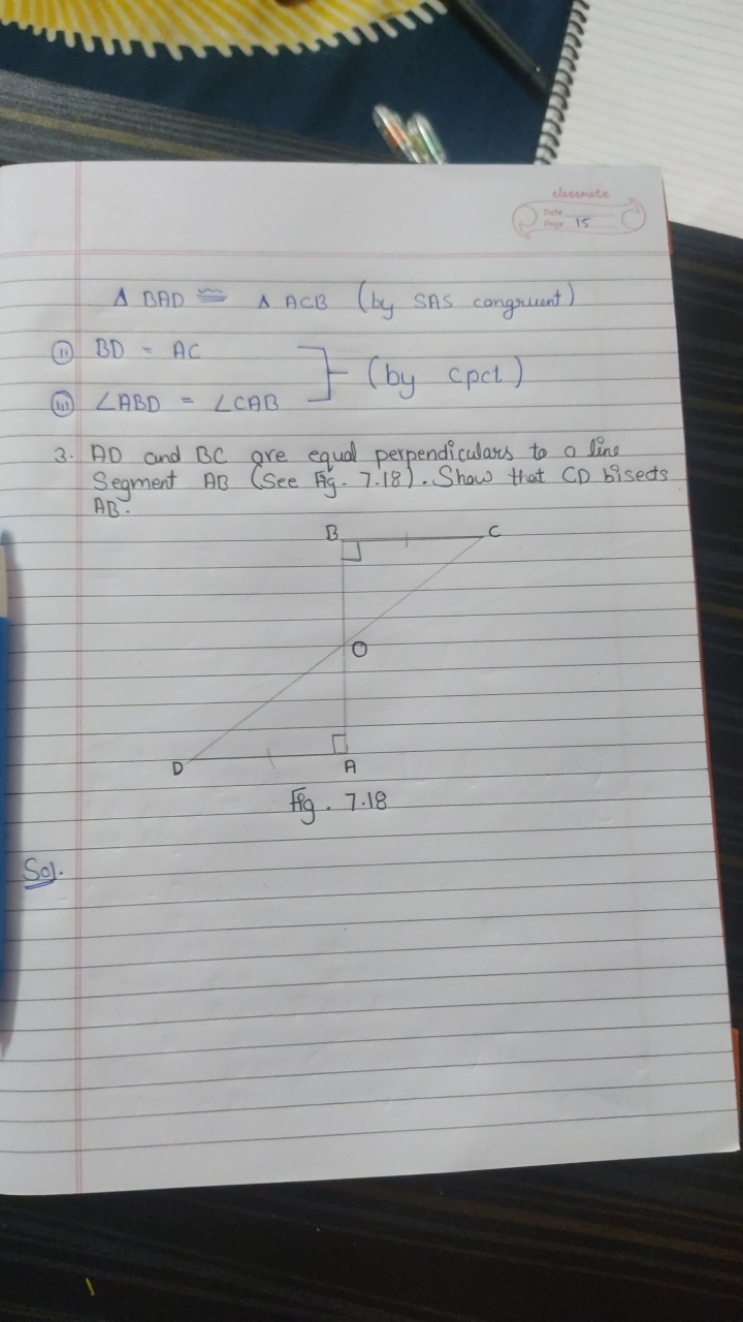 classmate
Date
Page 15
Δ BAD ≅ Δ ACB (by SAS congruent)
(ii) BD = AC
(by cpct)
(iii) ∠ABD = ∠CAB
3. AD and BC are equal perpendiculars to a line
Segment AB (See Fig. 7.18). Show that CD bisects
AB.
B C
O
D A
Fig. 7.18
Sol.